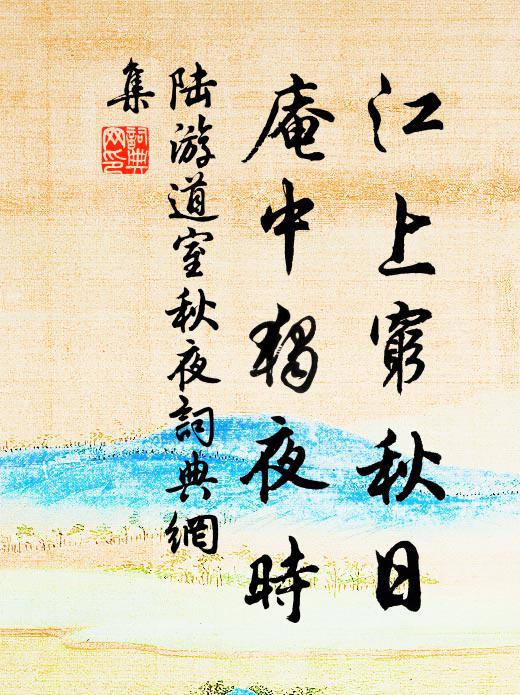 江上窮秋日
庵中獨夜時
陸游道室秋夜詞典網
集
詞典
网印